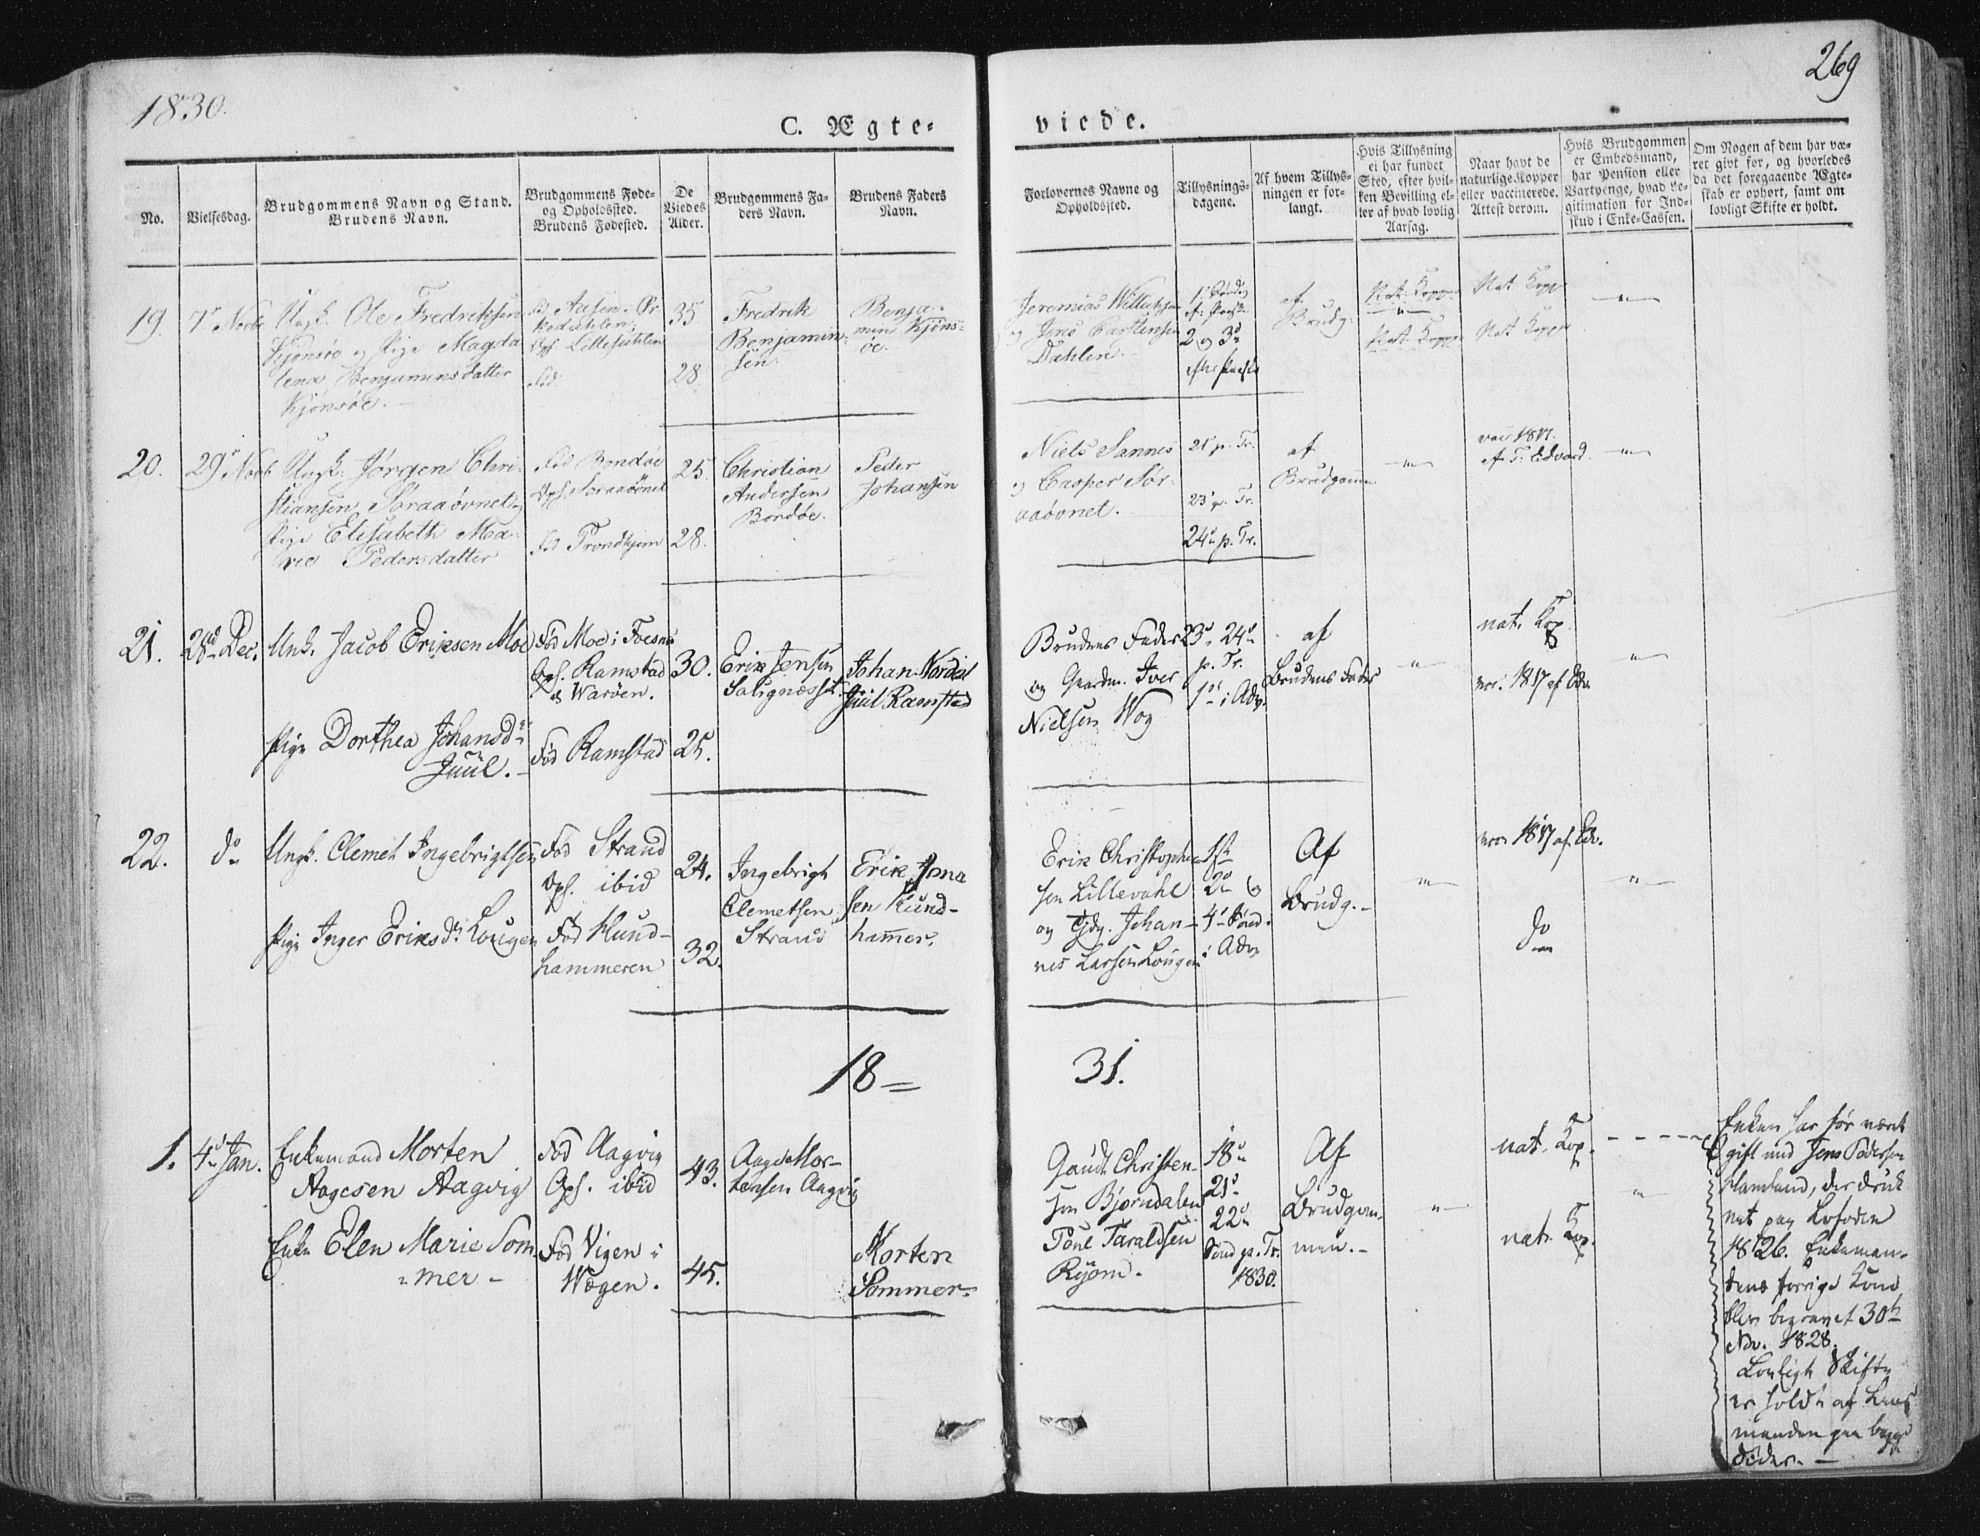 1830.
269
C. Ægte-
viede.
No.
Vielsesdag.
Brudgommens Navn og Stand.
Brudens Navn.
Brudgommens Føde-
og Opholdssted.
Brudens Fødested.
De
Viedes
Alder.
Brudgommens Fa-
ders Navn.
Brudens Faders
Navn.
Forlovernes Navne og
Opholdssted.
Tillysnings-
dagene.
Af hvem Tillys-
ningen er for-
langt.
Hvis Tillysning
ei har fundet
Sted, efter hvil-
ken Bevilling el-
ler af hvad lovlig
Aarsag.
Naar havt de
naturlige Kopper
eller vaccinerede.
Attest derom.
Hvis Brudgommen
er Embedsmand,
har Pension eller
Vartpenge, hvad Le-
gitimation for Ind-
skud i Enke-Cassen.
Om Nogen af dem har væ-
ret givt før, og hvorledes
da det foregaaende Ægte-
skab er ophørt, samt om
lovligt Skifte er holdt.
19.
Ungk. Ole Fredriksen
Kjønsøe og Pige Magda
lena Benjaminsdatter
Kjønsøe.
35
28.
Fredrik
Benjamin-
sen
Benja-
min Kjøns-
øe.
og Jens Carstensen
Dahlen.
2 og 3d
af
Brudg.
Nat. Kopp
Nat. Kopp
Nat Kopp
Nat Kopp
20.
29d Novb
Ungk. Jørgen Chri-
stiansen Soraaövnet
Pige Elisabeth Ma-
rie Pedersdatter
Fød Bondøe
Oph. Soraaövnet
Fød Trondhjem
25
28.
Christian
Andersen
Bondøe.
Peder
Johansen
Niels Sannes
og Casper Sor-
aaövnet.
21 p. Tr.
23 p. Tr.
24 p. Tr.
af
Brudgomm
vac. 1817.
af Edvard
21.
28d Dec.
Unk. Jacob Eriksen Moe
Pige Dorthea Johansdr
Juul.
Fød Moe i Foesnes
Oph. Ramstad
Warøen.
Fød Ramstad
30.
25.
Erik Jensen
Salignæsset
Johan Nordal
Juul Ramstad
Brudens Fader
og Gaardm. Iver
Nielsen Wog
23d, 24d
p. Tr.
1st i Adv.
af
Brudens Fader
nat. Kop.
vac. 1817 af Edv.
22.
do
Ungk. Clemet Ingebrigtsen
Pige Inger Eriksdr Lougen
Fød Strand
Oph. ibid
Fød Hund-
hammeren
24.
32.
Ingebrigt
Clemetsen
Strand
Erik Jona
sen Hund-
hamer.
Erik Christopher-
sen Lillevahl
og Johan-
nes Larsen Lougen
1st
2d og
4d Sønd.
i Adv.
Af
Brudg.
vac. 1817 af Edv.
do
18
31.
1.
4d Jan.
Enkemand Morten
Aagesen Aagvig
Enke Elen Marie Som
mer
Fød Aagvig
Oph. ibid
Fød Vigen i
Wægen.
43.
45.
Aage Mor-
tensen Aagvig
Morten
Sommer
Gaudt Christen-
sen Bjørndalen
Poul Taraldsen
Ryom.
18d
21d
22d
Sønd p. Tr.
1830.
Af
Brudgom-
men.
nat. Kop.
nat. Kop.
Enken har før været
gift med Jens Pedersen
der druk
net paa Lofoden
1826. Enkeman-
dens forrige Kone
blev begravet 30te
Nov. 1828.
Lovligt Skifte
er holdt af Lens
manden paa begge
Sider.